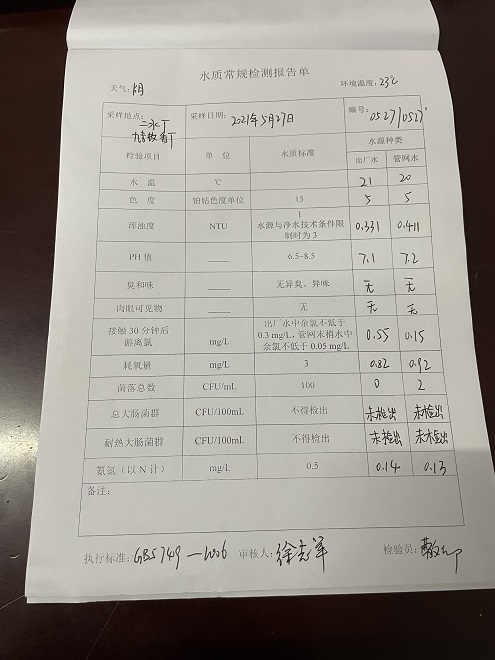 水质常规检测报告单
天气: 阴 环境温度: 23℃
采样地点: 二水厂 采样日期: 2021年5月27日 编号: 0527/0527'
水源种类
检验项目 单 位 水质标准 出厂水 管网水
水 温 ℃ 21 20
色 度 铂钴色度单位 15 5 5
浑浊度 NTU 1 0.331 0.411
水源与净水技术条件限
制时为 3
PH 值 —— 6.5~8.5 7.1 7.2
臭和味 —— 无异臭、异味 无 无
肉眼可见物 —— 无 无 无
接触 30 分钟后 出厂水中余氯不低于
游离氯 mg/L 0.3 mg/L, 管网末梢水中 0.55 0.15
余氯不低于 0.05 mg/L
耗氧量 mg/L 3 0.82 0.92
菌落总数 CFU/mL 100 0 2
总大肠菌群 CFU/100mL 不得检出 未检出 未检出
耐热大肠菌群 CFU/100mL 不得检出 未检出 未检出
氨氮（以 N 计） mg/L 0.5 0.14 0.13
备注:
执行标准: GB5749—2006 审核人: 徐志军 检验员: